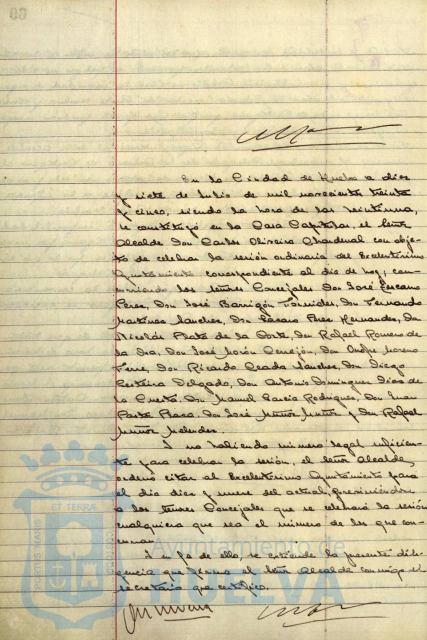 En la Ciudad de Huelva a diez
y siete de Julio de mil novecientos treinta
y cinco, siendo la hora de las veintiuna,
se constituyó en la Casa Capitular, el Señor
Alcalde Don Carlos Oliveira Chardenal con obje-
to de celebrar la sesión ordinaria del Excelentísimo
Ayuntamiento correspondiente al dia de hoy, con-
curriendo los señores Concejales Don José Lescano
Perez, Don José Barrigón Don Fernando
Martinez Sanchez, Don Perez Hernandez, Don
Nicolás Prats de la Corte, Don Rafael Romero de
la Osa, Don José Morón Cerrejón, Don Onofre Moreno
Don Ricardo Sanchez, Don Diego
Delgado, Don Antonio Dominguez Diaz de
la Cuesta, Don Manuel Garcia Rodriguez, Don Juan
Don José Muñoz Muñoz y Don Rafael
Muñoz Melendez.
Y no habiendo número legal suficien-
te para celebrar la sesión, el Señor Alcalde,
ordenó citar al Excelentísimo Ayuntamiento para
el dia diez y nueve del actual, previniéndose
a los señores Concejales que se celebrará la sesión
cualquiera que sea el número de los que con-
curran
Y en fe de ello, se extiende la presente dili-
gencia que firma el Señor Alcalde conmigo el
secretario que certifico.
Ayuntamiento de
HUELVA
ET TERRÆ